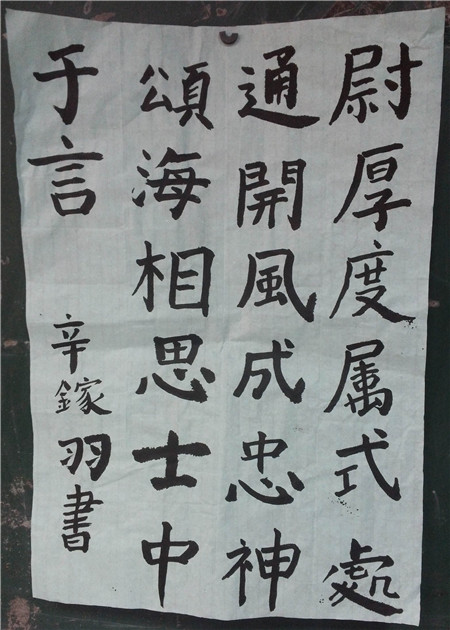 尉厚度属式處
通開風成忠神
頌海相思士中
于言
辛鎵羽書